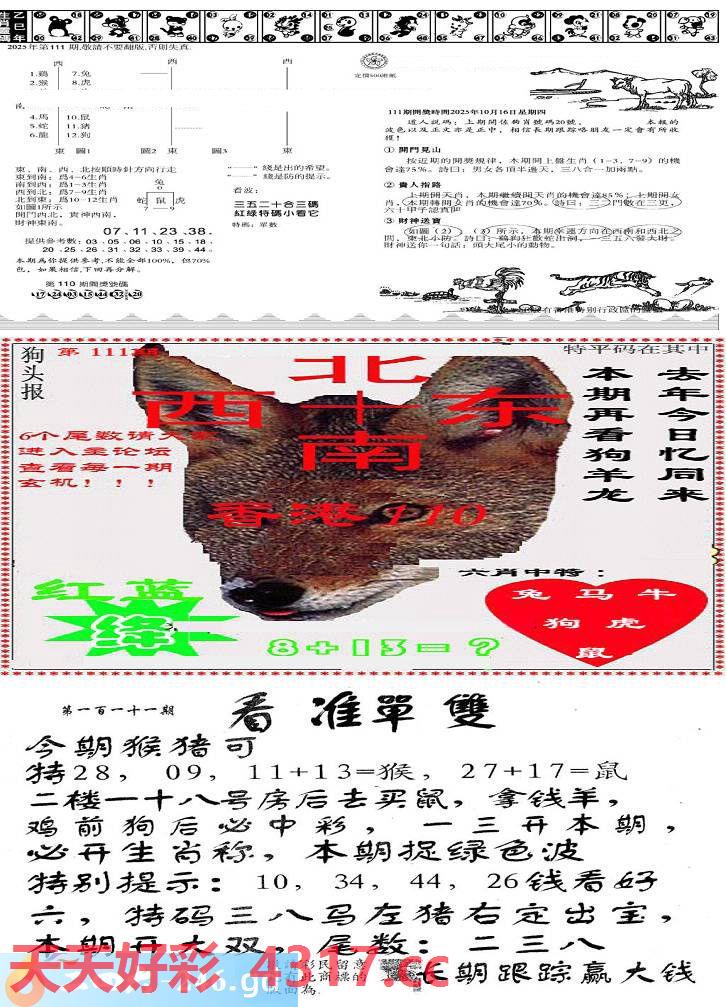 乙巳年
生肖靈碼
2025年第111期,敬請不要翻版,否則失真
西
西
西
1.鷄 7.兔
2.猴 8.虎
南
4.馬 10.鼠
5.蛇 11.猪
6.龍 12.狗
東 圖1
圖2 東
圖3 東
東、南、西、北按順時針方向行走
東到南:爲4−6生肖
南到西:爲1−3生肖
西到北:爲7−9生肖
北到東:爲10−12生肖
如圖1所示
開門西北,貴神西南,
財神東南。
兔
6
蛇 鼠 虎
7 9
綫是出的希望。
綫是防的提示。
看波:
三五二十合三碼
紅綠特碼小看它
特碼:單數
07.11.23.38.
提供參考數:03.05.06.10.15.18
20.25.26.31.32.33.39.44
本期為你提供參考,不能全都100%,但70%
包,如果相信,下回再分解。
第 110 期開獎號碼
17 24 03 15 44 32 20
定價500港紙
111期開獎時間2025年10月16日星期四
道人説碼:上期開依舊肖號碼20號,
本報的
波色以及正文亦是正中,相信長期跟踪咯朋友一定會有所收
獲!
① 開門見山
按近期的開獎規律,本期開上盤生肖(1−3、7−9)的機
會達75%。詩曰:男女各頂半邊天,三八合一加兩點。
② 貴人指路
上期開天肖,本期繼續開天肖的機會達85%,七期開女
肖,本期轉開女肖的機會達70%。詩曰:三一門數在三更,
六十甲子認真肥
③ 財神送寶
如圖(2)(3)所示,本期幸運方向在西南和西北之
間,東北小防。詩曰:鷄狗狂歡蛇出洞,一三五六發大財。
財神送你一句話:頭大尾小的動物。
狗头报
第 111期
特平码在其中
北
西十东
南
去年今日忆同来
本期再看狗羊龙
6个尾数请大家
进入主论坛
查看每一期
玄机!!!
香港110
六肖中特:
兔 马 牛
狗 虎
鼠
红 蓝
绿
8+13=?
第一百一十一期
看 准 單 雙
今期猴猪可
特28, 09, 11+13=猴, 27+17=鼠
二楼一十八号房后去买鼠, 拿钱羊,
鸡前狗后必中彩, 一三开本期,
必开生肖称, 本期捉绿色波
特别提示: 10, 34, 44, 26钱看好
六, 特码三八马左猪右定出宝,
本期开大双, 尾数: 二三八
彩民留意
在此商標的
版面為.
长期跟踪赢大钱
天天好彩 4317.cc